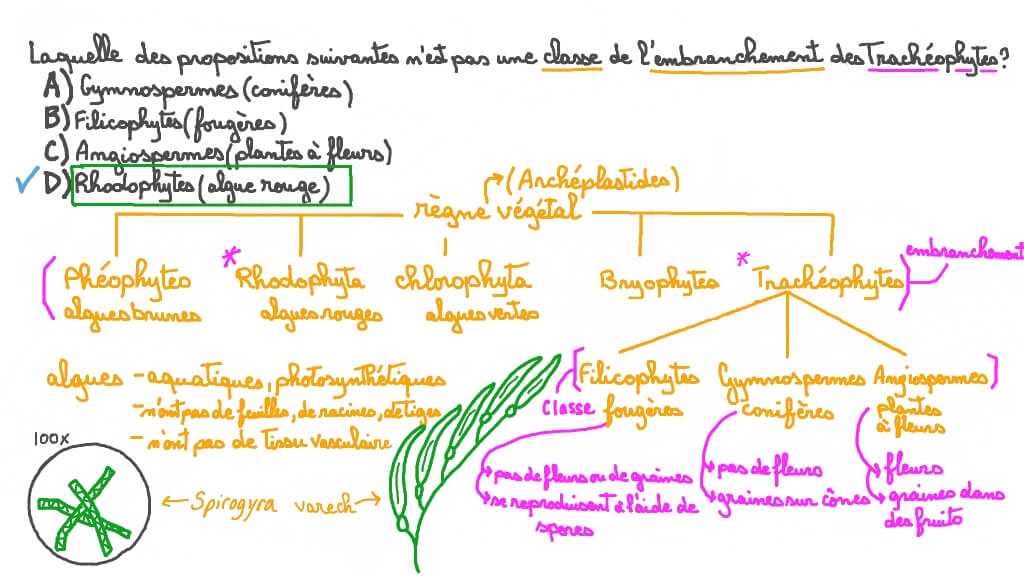 Laquelle des propositions suivantes n'est pas une classe de l'embranchement des Trachéophytes?
A) Gymnospermes (conifères)
B) Filicophytes (fougères)
C) Angiospermes (plantes à fleurs)
D) Rhodophytes (algue rouge)
(Archéplastides)
règne végétal
embranchement
Phéophytes
algues brunes
* Rhodophyta
algues rouges
chlorophyta
algues vertes
Bryophytes
* Trachéophytes
algues - aquatiques, photosynthétiques
- n'ont pas de feuilles, de racines, de tiges
- n'ont pas de tissu vasculaire
100x
Spirogyra
varech
Classe
Filicophytes
fougères
Gymnospermes
conifères
Angiospermes
plantes
à fleurs
pas de fleurs ou de graines
se reproduisent à l'aide de
spores
pas de fleurs
graines sur cônes
fleurs
graines dans
des fruits